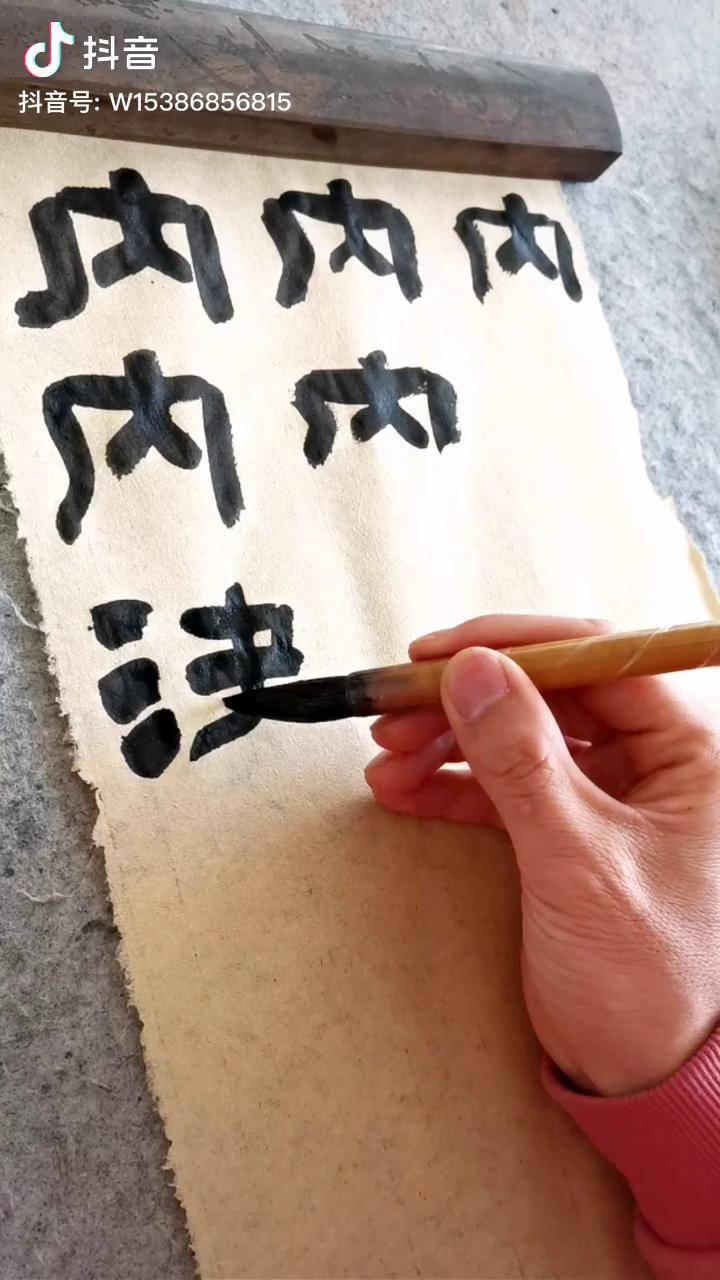 抖音
抖音号: W15386856815
内 内 内
内 内